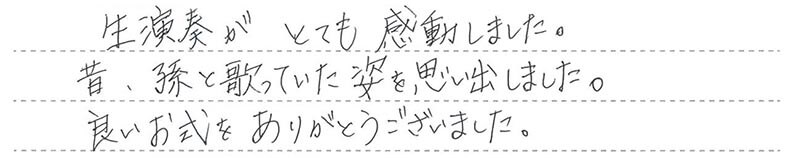 生演奏が とても 感動しました。
昔、孫と歌っていた姿を思い出しました。
良いお式を ありがとうございました。